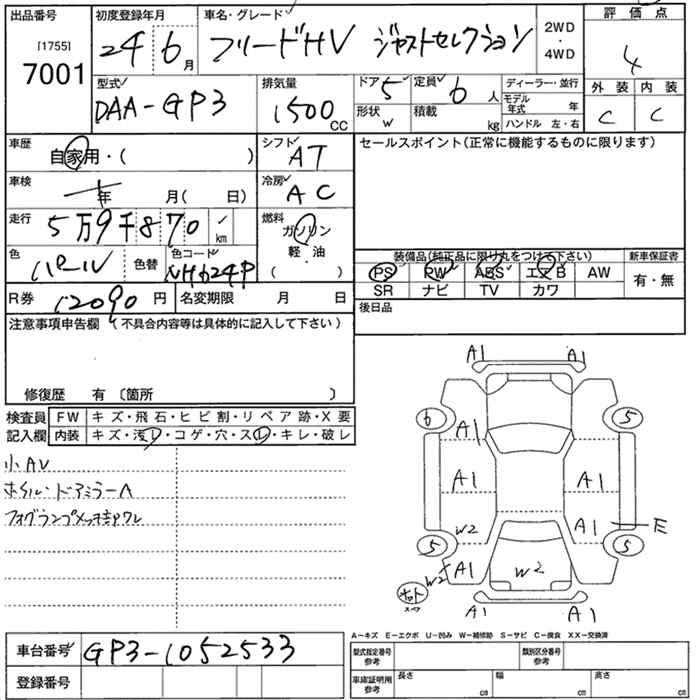 出品番号 初度登録年月 車名・グレード 2WD・4WD 評価点
[1755]
7001 24 6月 フリードHV ジャストセレクション 4
型式 排気量 ドア 5 定員 6人 ディーラー・並行 外装 内装
DAA-GP3 1500CC 形状 W 積載 kg モデル年式 年 C C
ハンドル 左・右
車歴 自家用・( ) シフト AT セールスポイント(正常に機能するものに限ります)
車検 年 月( 日) 冷房 AC
走行 5万9千870 km 燃料 ガソリン
軽・油
( )
色 パール 色替 色コード NH624P 装備品(純正品に限り丸をつけて下さい) 新車保証書
PS PW ABS エアB AW 有・無
SR ナビ TV カワ
R券 12090円 名変期限 月 日 後日品
注意事項申告欄 (不具合内容等は具体的に記入して下さい)
修復歴 有 〔箇所 〕
検査員 FW キズ・飛石・ヒビ割・リペア跡・X要
記入欄 内装 キズ・汚レ・コゲ・穴・スレ・キレ・破レ
小AV
ホイル・ドアミラーA
フォグランプメッキ部ワレ
A1 A1
6 5
A1
A1 A1
W2 A1 E
5 5
W2 A1 W2 A1
A1 A1
A-キズ E-エクボ U-凹み W-補修跡 S-サビ C-腐食 XX-交換済
車台番号 GP3-1052533 型式指定番号 参考 類別区分番号 参考
登録番号 車庫証明用 参考 長さ cm 幅 cm 高さ cm